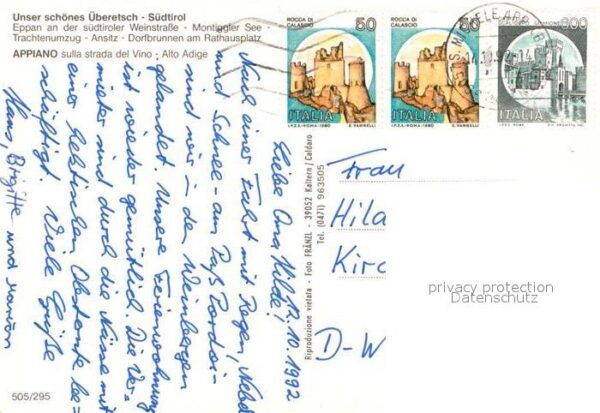 Unser schönes Überetsch - Südtirol
Eppan an der südtiroler Weinstraße - Montiggler See -
Trachtenumzug - Ansitz - Dorfbrunnen am Rathausplatz
APPIANO sulla strada del Vino - Alto Adige
ROCCA DI
CALASCIO
50
ITALIA
I.P.Z.S.-ROMA-1980
E. VANGELLI
ROCCA DI
CALASCIO
50
ITALIA
I.P.Z.S.-ROMA-1980
E. VANGELLI
600
ITALIA
12.10.1992
Liebe Oma Hilde!
Nach einer Fahrt mit Regen, Nebel
und Schnee - am Paß Bordoi -
sind wir in den Weinbergen
gelandet. Unsere Ferienwohnung
ist wieder gemütlich. Die Ver-
mieter sind durch die Nässe mit
einer hektischen Obsternte be=
schäftigt. Viele Grüße
Hans, Birgitte und Marion
Riproduzione vietata - Foto FRÄNZL - 39052 Kaltern / Caldaro
Tel. (0471) 963505
Frau
Hila
Kirc
D-W
privacy protection
Datenschutz
505/295